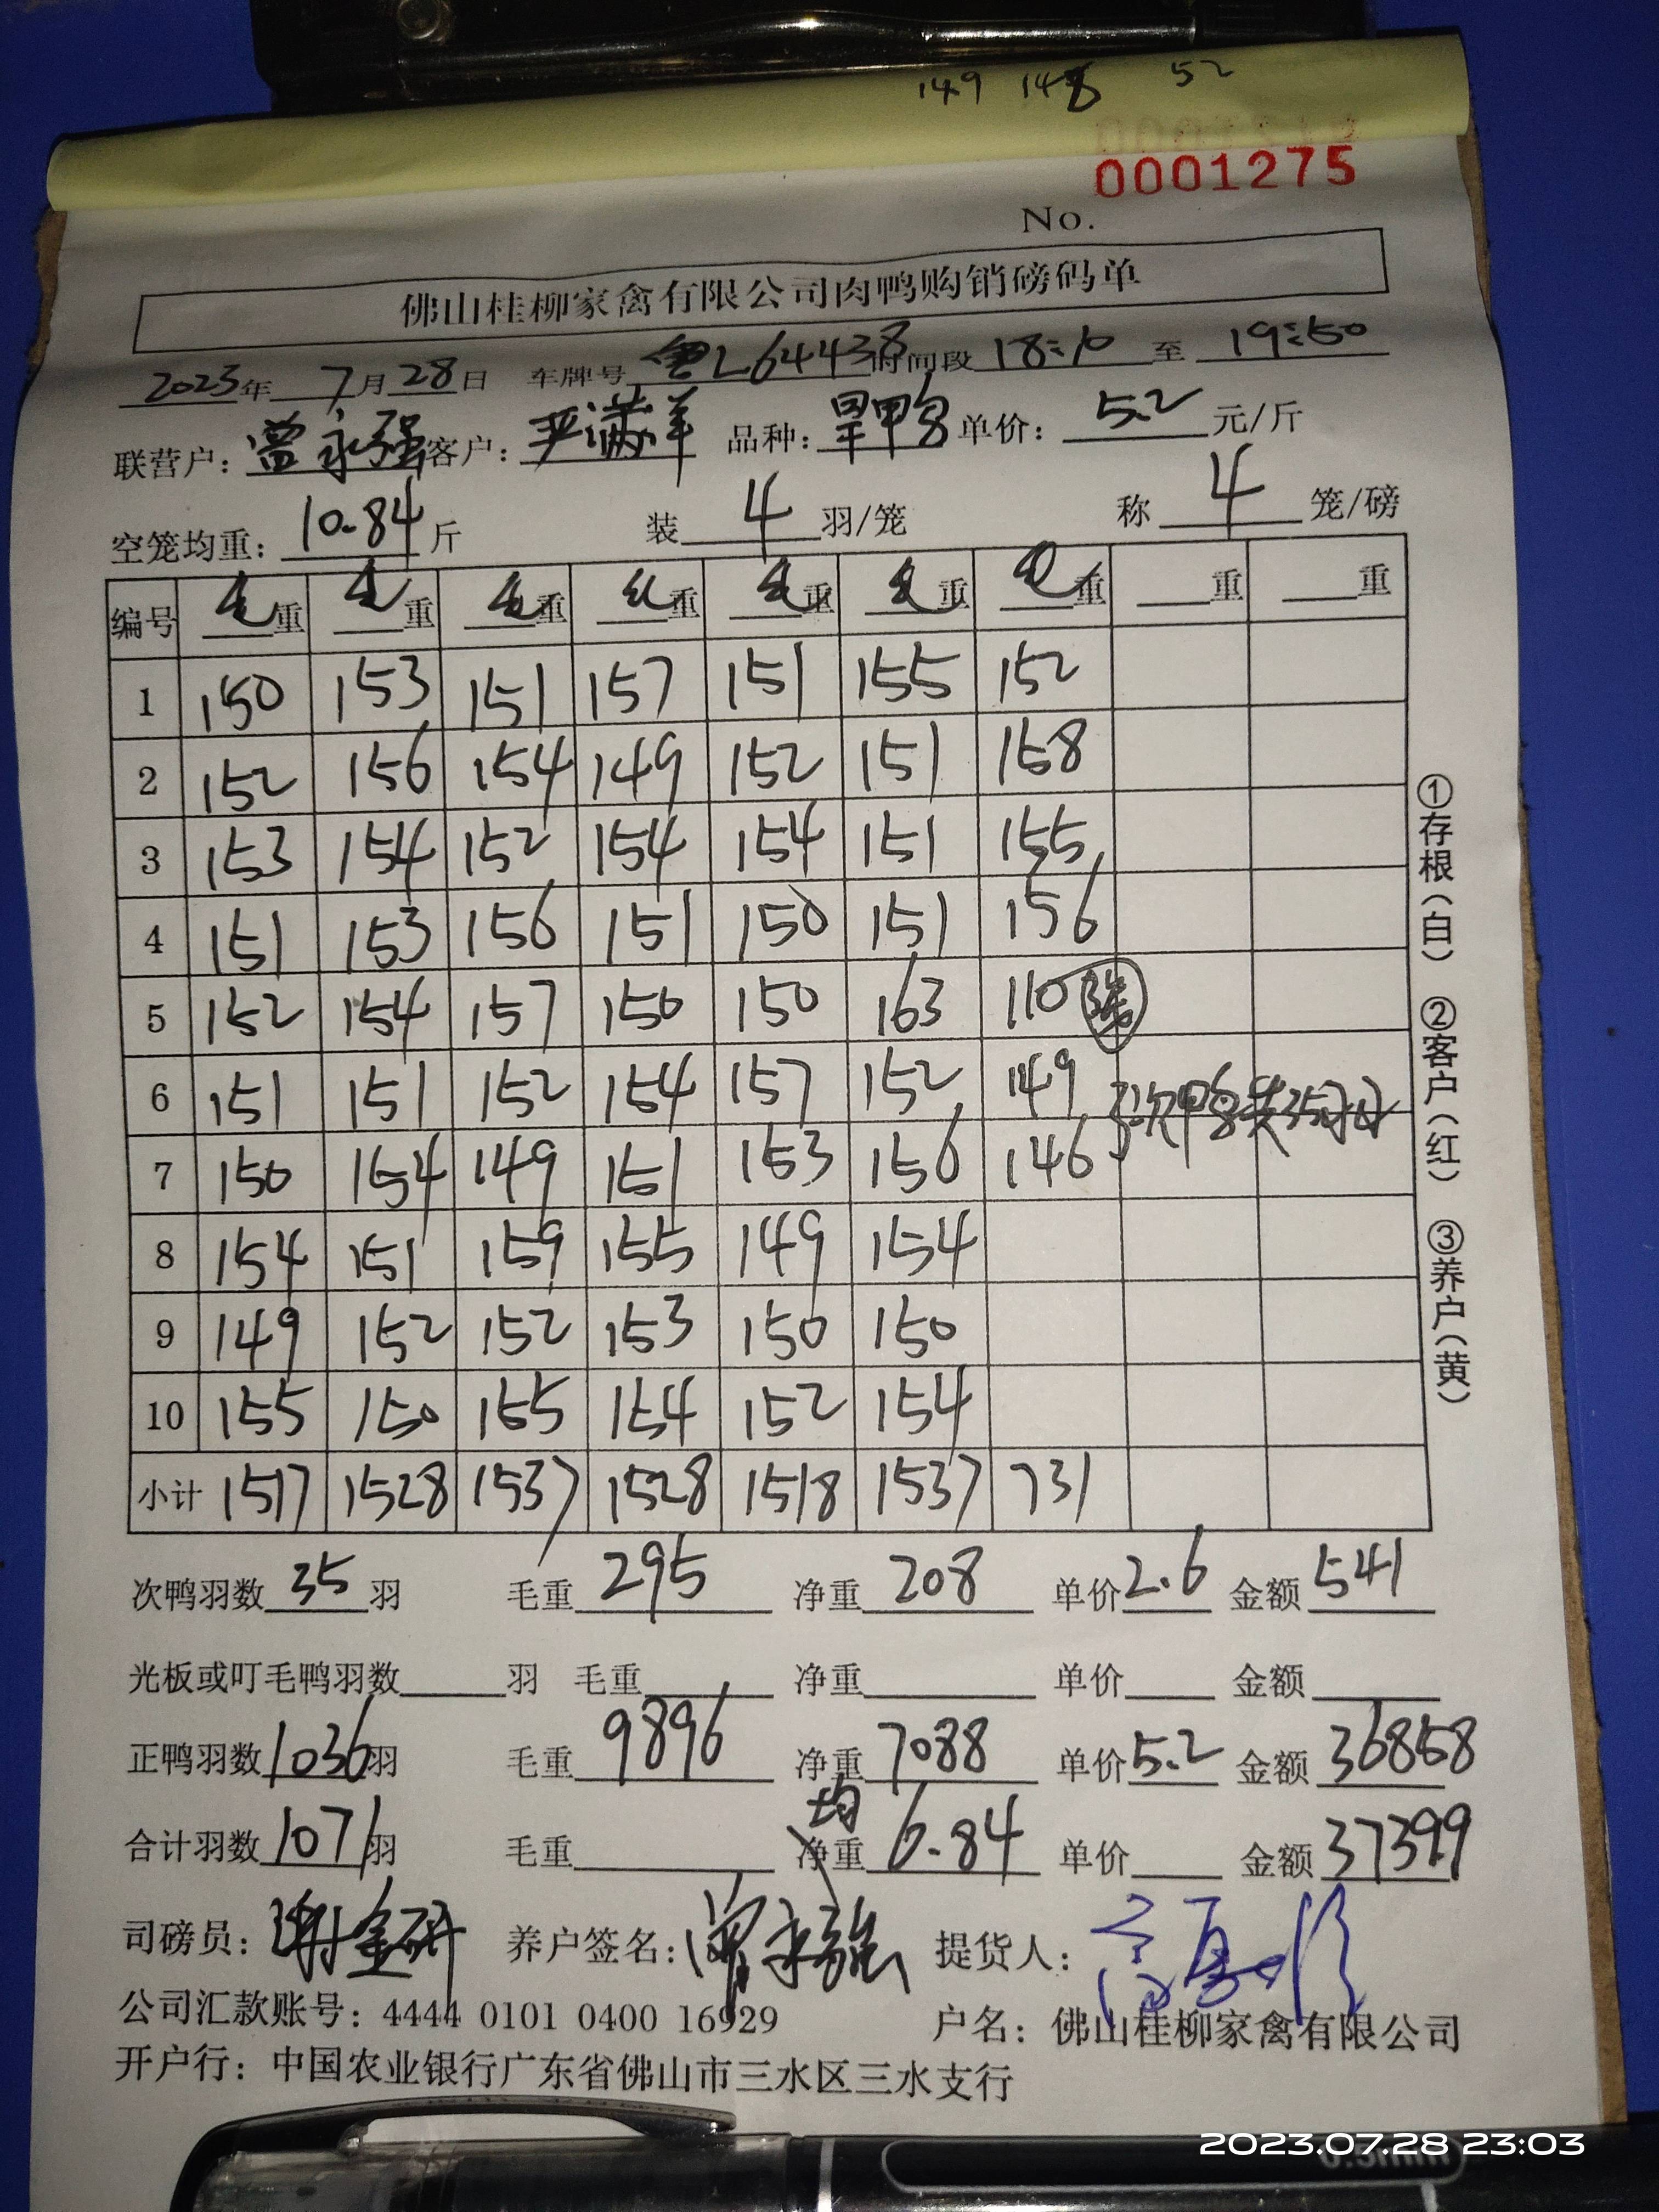 149 148 52
0001275
No.
佛山桂柳家禽有限公司肉鸭购销磅码单
2023年 7月28日 车牌号 粤L64438 时间段 18:10 至 19:50
联营户: 曾永强 客户: 严满洋 品种: 旱鸭 单价: 5.2 元/斤
空笼均重: 10.84 斤 装 4 羽/笼 称 4 笼/磅
编号 毛重 毛重 毛重 毛重 毛重 毛重 毛重 重 重
1 150 153 151 157 151 155 152
2 152 156 154 149 152 151 158
3 153 154 152 154 154 151 155
4 151 153 156 151 150 151 156
5 152 154 157 150 150 163 110 3笼
6 151 151 152 154 157 152 149
7 150 154 149 151 153 156 146
8 154 151 159 155 149 154
9 149 152 152 153 150 150
10 155 150 155 154 152 154
小计 1517 1528 1537 1528 1518 1537 731
次鸭羽数 35 羽 毛重 295 净重 208 单价 2.6 金额 541
光板或叮毛鸭羽数 羽 毛重 净重 单价 金额
正鸭羽数 1036 羽 毛重 9896 净重 7088 单价 5.2 金额 36858
合计羽数 1071 羽 毛重 净重 均 6.84 单价 金额 37399
司磅员: 谢金研 养户签名: 曾永强 提货人:
公司汇款账号: 4444 0101 0400 16929 户名: 佛山桂柳家禽有限公司
开户行: 中国农业银行广东省佛山市三水区三水支行
①存根(白) ②客户(红) ③养户(黄)
0.5mm
2023.07.28 23:03